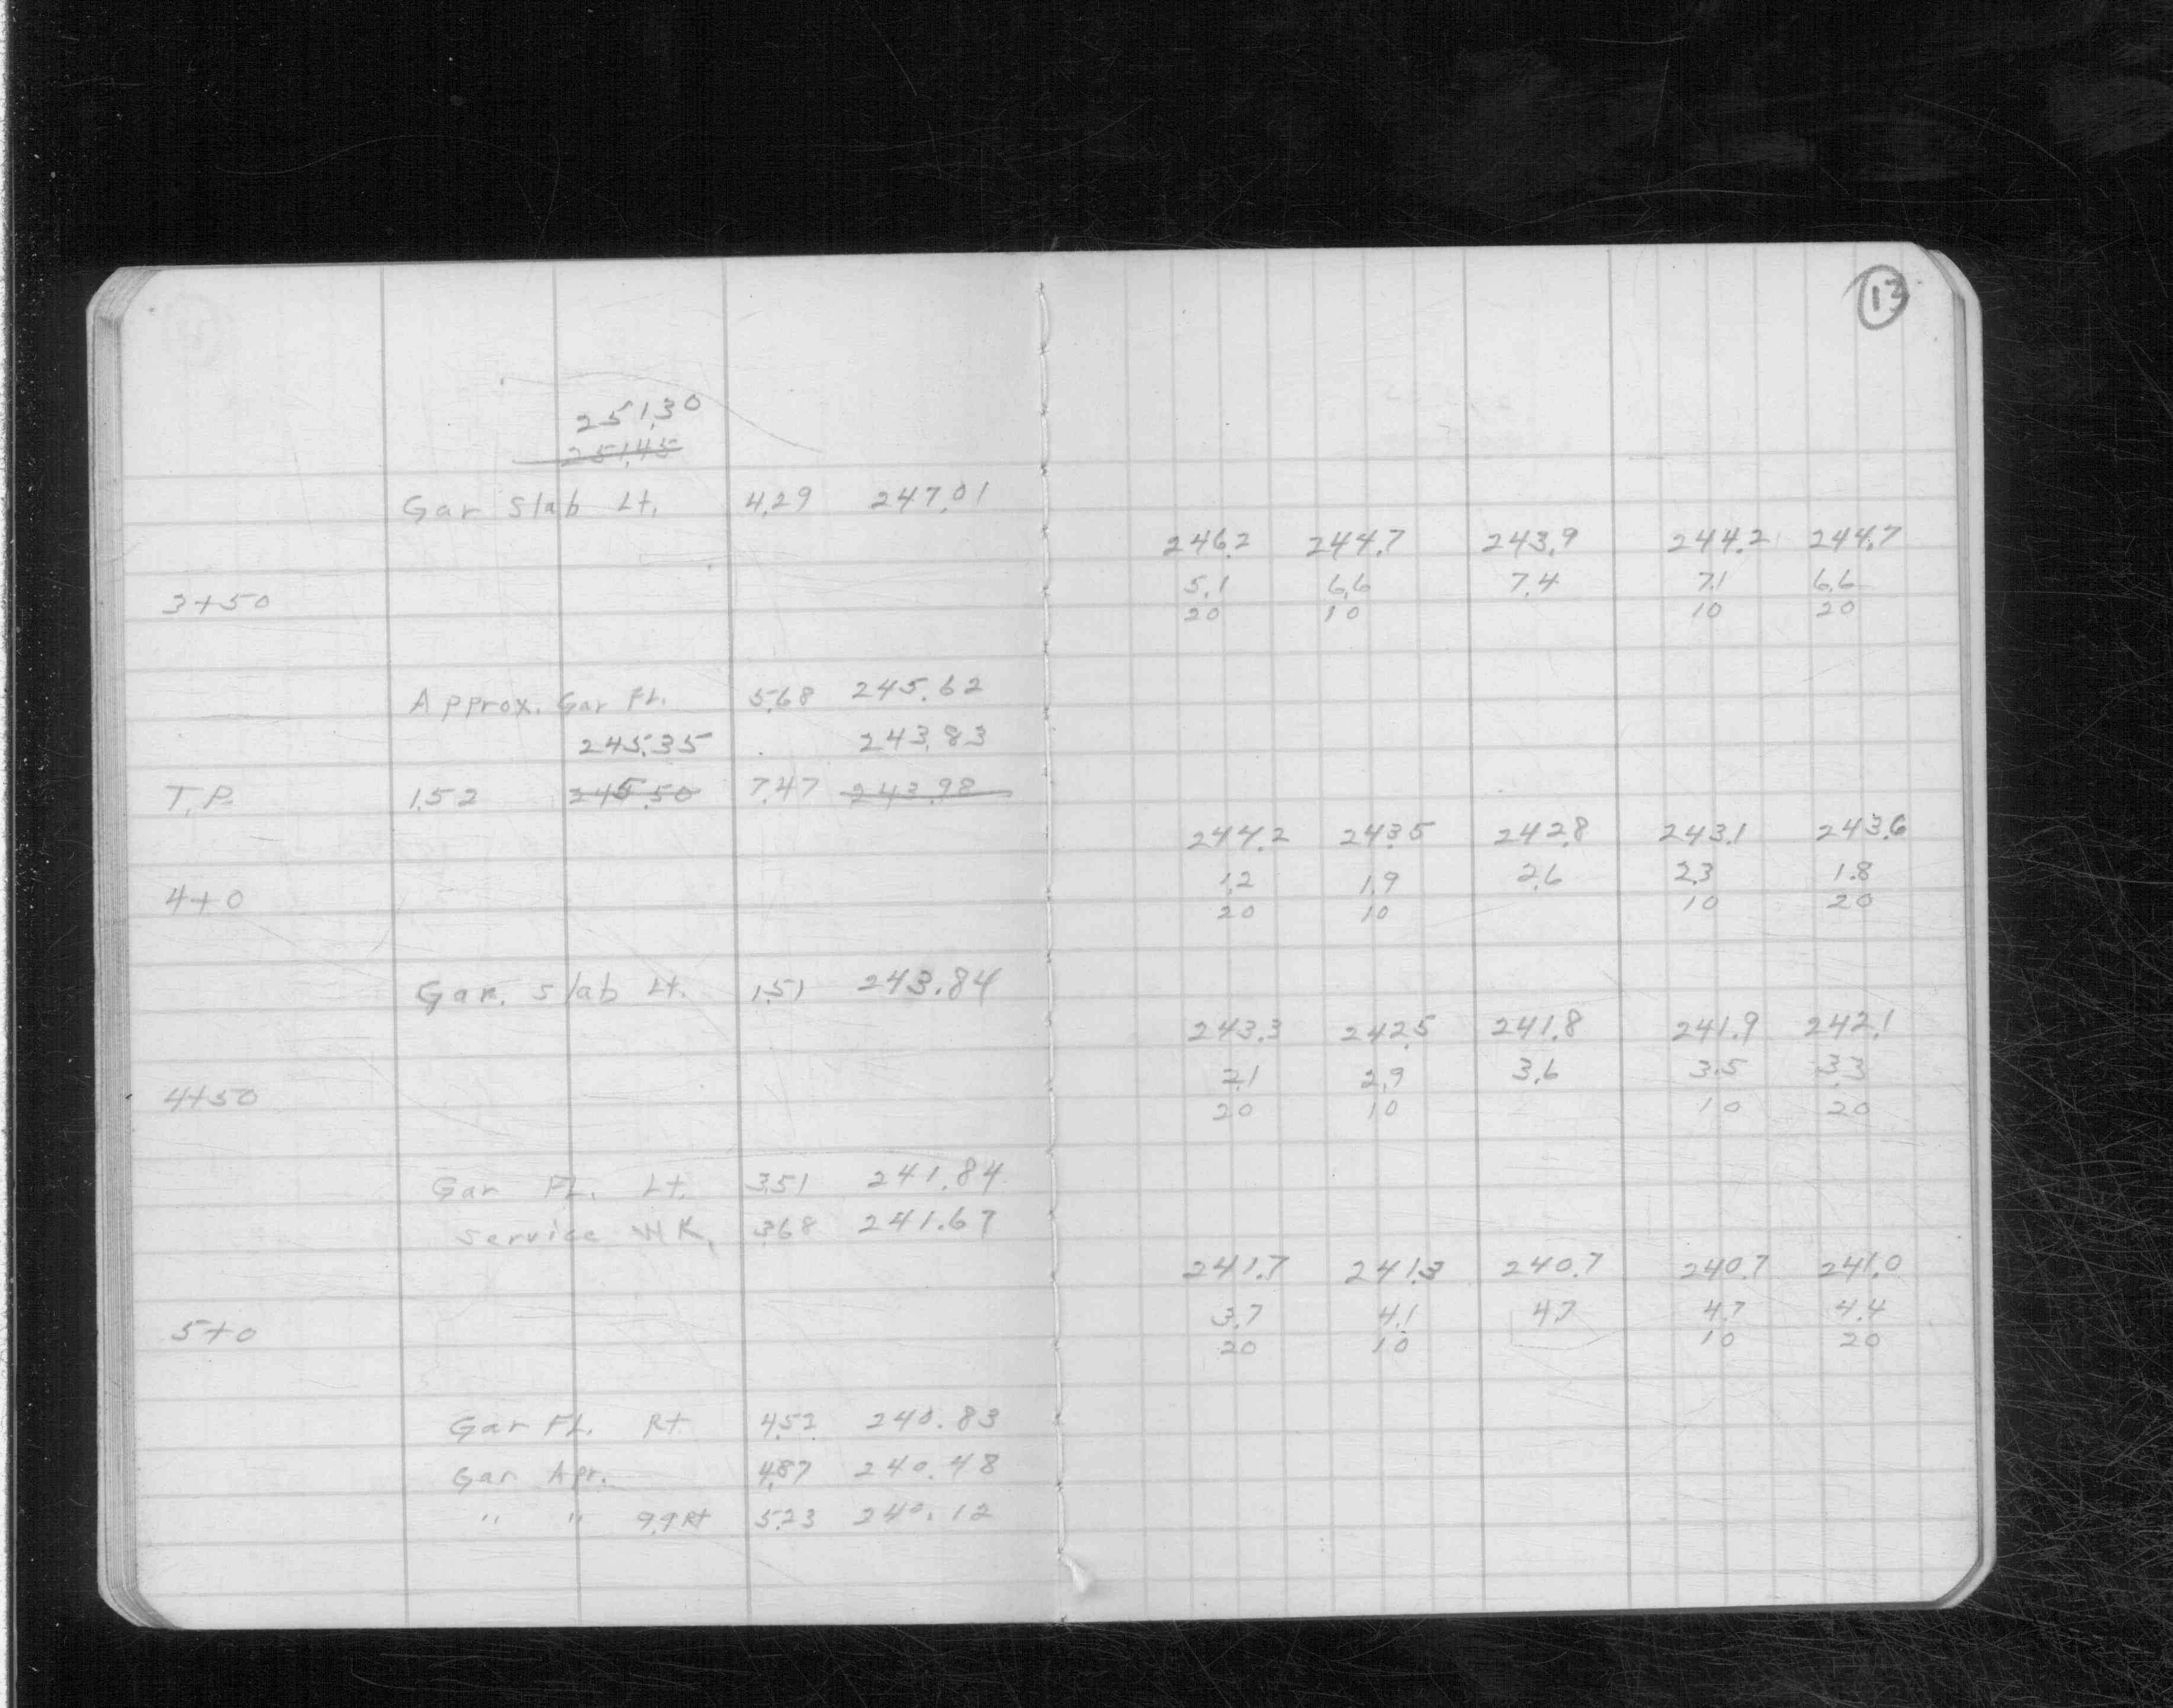 13
251.30
251.45
Gar Slab Lt. 4.29 247.01
246.2 244.7 243.9 244.2 244.7
5.1 6.6 7.4 7.1 6.6
3+50 20 10 10 20
Approx. Gar FL. 5.68 245.62
245.35 243.83
T.P. 1.52 245.50 7.47 243.98
244.2 243.5 242.8 243.1 243.6
1.2 1.9 2.6 2.3 1.8
4+0 20 10 10 20
Gar. Slab Lt. 1.51 243.84
243.3 242.5 241.8 241.9 242.1
2.1 2.9 3.6 3.5 3.3
4+50 20 10 10 20
Gar FL. Lt. 3.51 241.84
Service WK. 3.68 241.67
241.7 241.3 240.7 240.7 241.0
3.7 4.1 4.7 4.7 4.4
5+0 20 10 10 20
Gar FL. Rt 4.52 240.83
Gar Apr. 4.87 240.48
" " 9.9 Rt 5.23 240.12